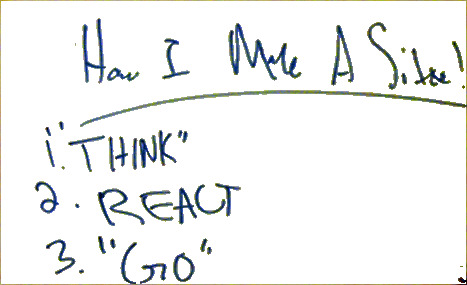 How I Make A Sitee!
1. "THINK"
2. REACT
3. "GO"